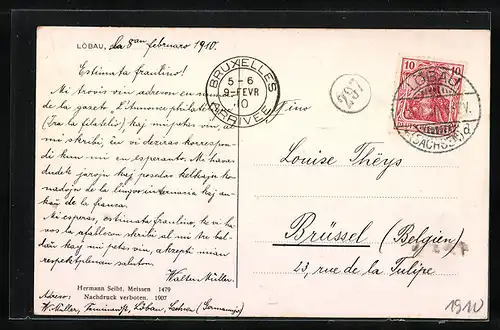 LÖBAU, la 8an februaro 1910.
Estimata fraulino!
Mi trovis vian adreson en numero
de la gazeto "L'Annonce philatélique"
(Tra la filatelio), kaj mi petas vin, al
mi skribi, ĉu vi deziras korrespon-
di kun mi en esperanto. Mi havas
dudek jarojn kaj posedas kelkajn ko-
nadojn de la lingvo internacia kaj an-
kaŭ de la franca.
Mi esperas, estimata fraulino, ke vi ha-
vos la afablon skribi al mi tre bal-
daŭ kaj mi petas vin, akcepti mian
respektplenan saluton.
Walter Müller.
Hermann Seibt, Meissen 1479
Nachdruck verboten. 1907
Adreso:
W. Müller, Löbau, Sachsen (Germanujo)
BRUXELLES
5-6
9-FEVR
10
ARRIVEE
Fino
Louise Thëys
Brüssel (Belgien)
23, rue de la Tulipe
10 10
LÖBAU
(SACHSEN) d
1910